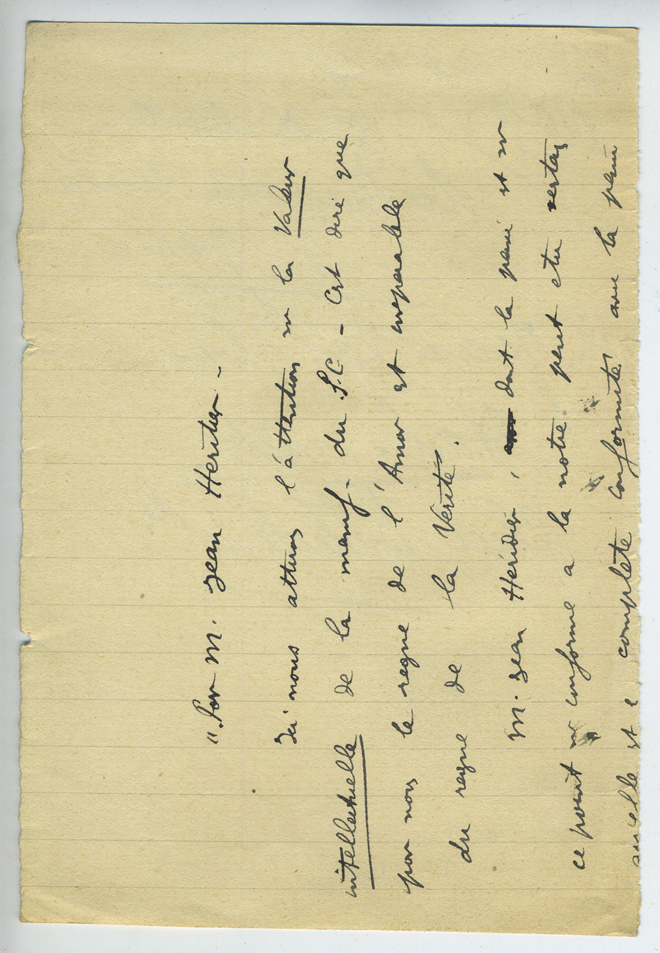 "Par M. Jean Heritier -
Ici nous attirons l'attention sur la Valeur
intellectuelle de la manif. du S.C - C'est dire que
pour nous le regne de l'Amour est inseparable
du regne de la Verité.
M. Jean Héritier, dont la pensée est sur
ce point conforme a la notre peut etre
et complète conformité avec la pensée